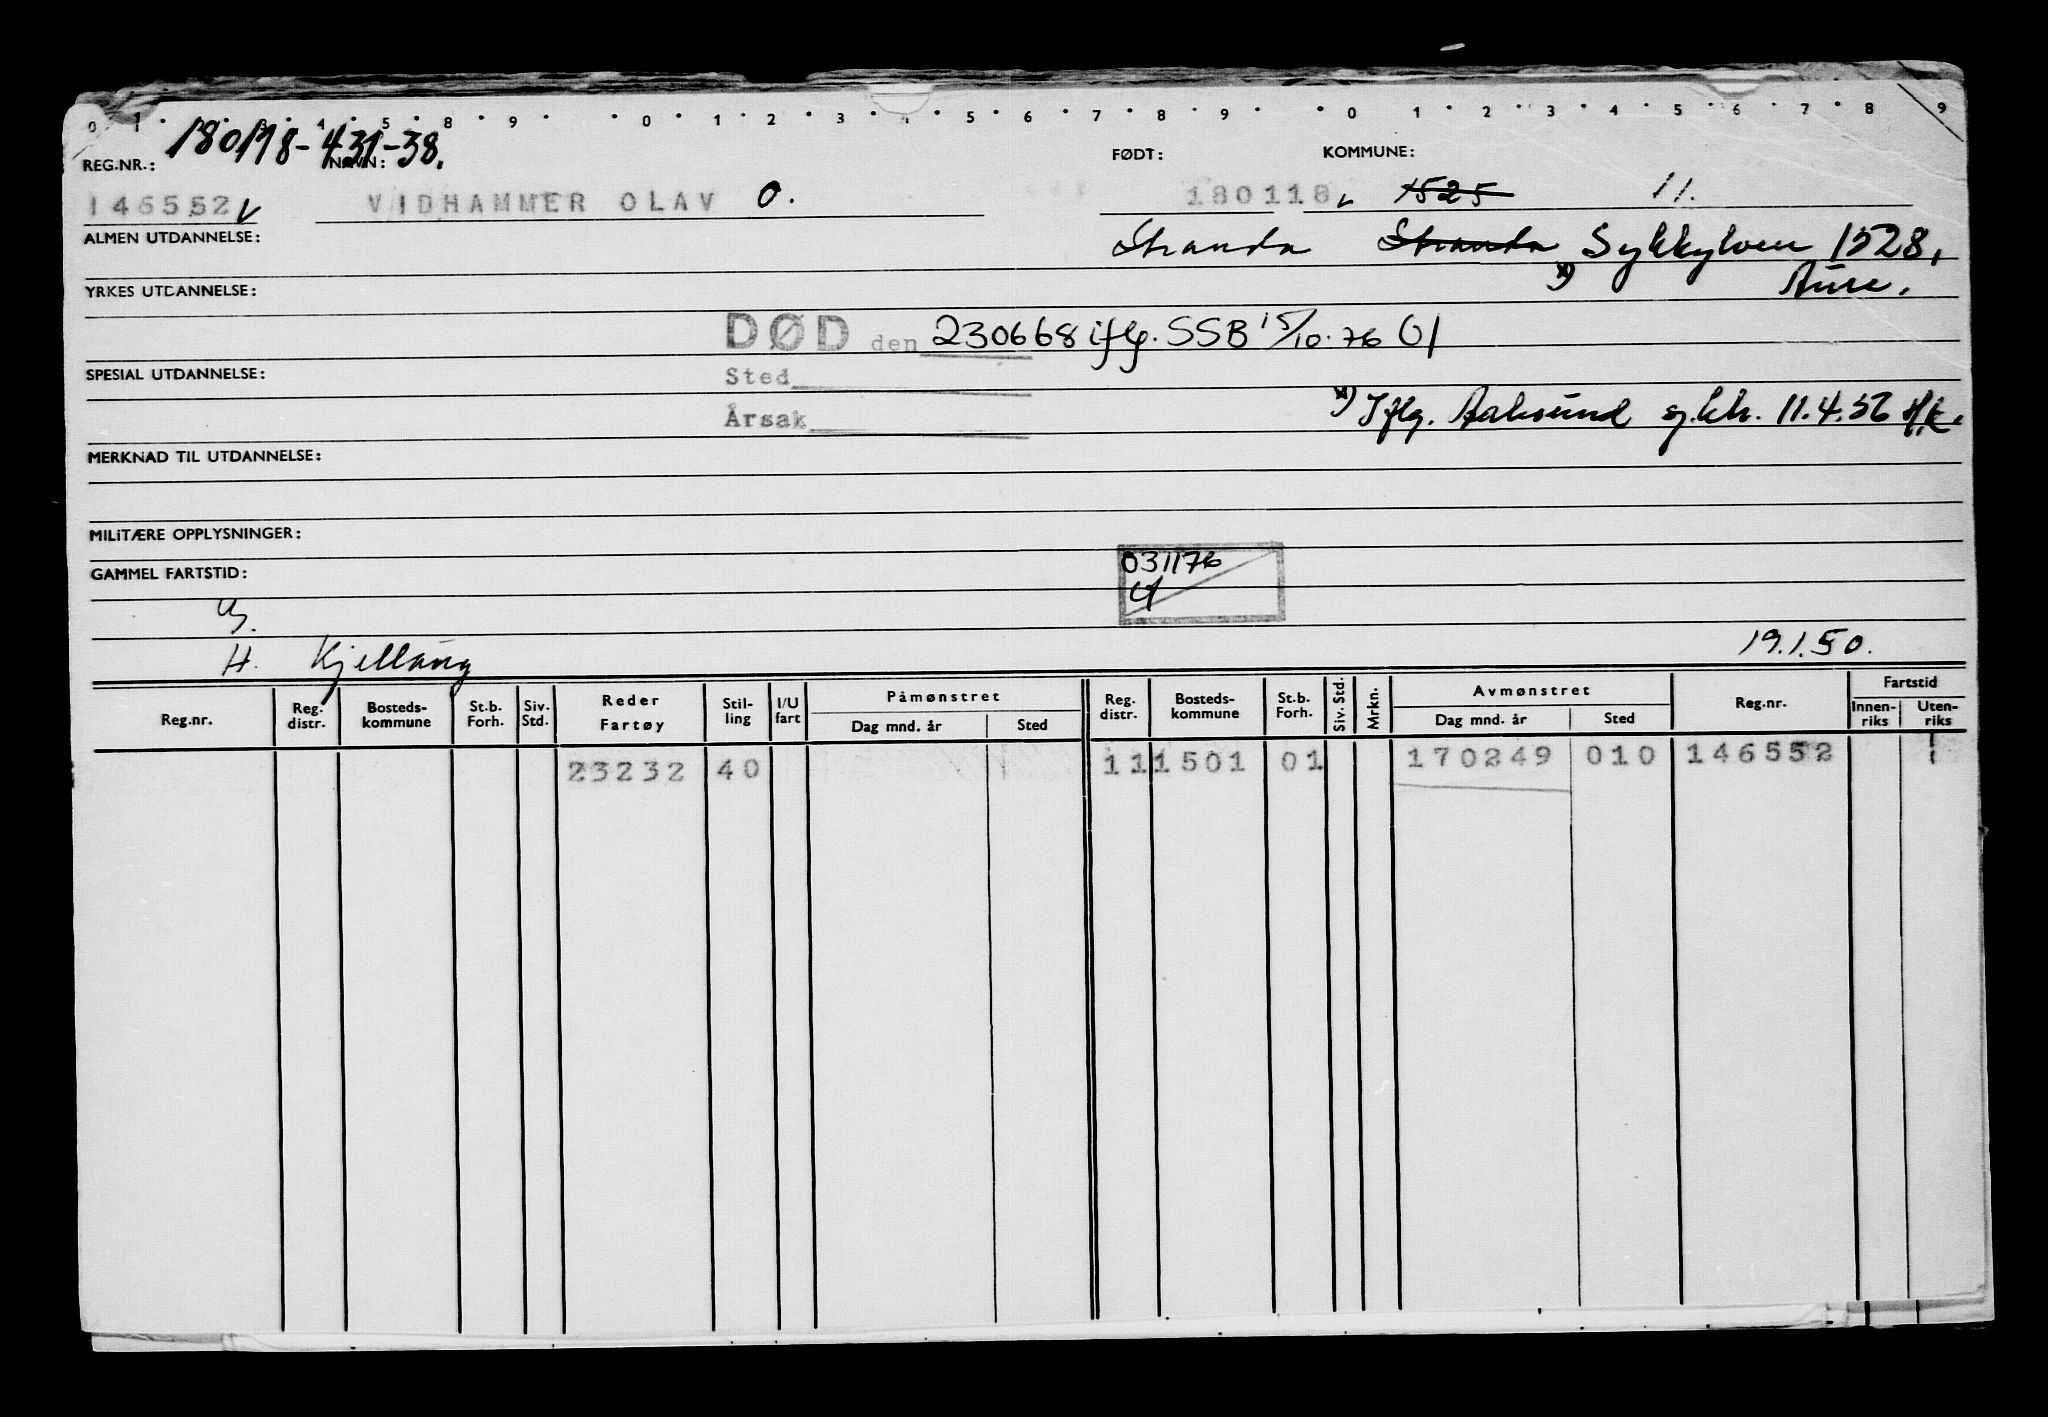 0 1 · 3 · 4 · 5 · 8 · 9 · · 0 · 1 · 2 · 3 · 4 · 5 · 6 · 7 · 8 · 9 · · 0 · 1 · 2 · 3 · 4 · 5 · 6 · 7 · 8 9
180118-431-38.
REG.NR.: NAVN: FØDT: KOMMUNE:
146552 v VIDHAMMER OLAV O. 180118 v 1525 11.
ALMEN UTDANNELSE: Stranda Stranda Sykkylven 1528,
x) Aure.
YRKES UTDANNELSE:
DØD den 230668 iflg. SSB 15/10.76 Ul
SPESIAL UTDANNELSE: Sted
Årsak x) Iflg. Aalesund sj.ktr. 11.4.56 H.K.
MERKNAD TIL UTDANNELSE:
MILITÆRE OPPLYSNINGER:
031176
GAMMEL FARTSTID:
G.
H. Kjellaug 19.1.50.
Reg.nr. Reg. distr. Bosteds-kommune St.b. Forh. Siv. Std. Reder Fartøy Stil-ling I/U fart Påmønstret Dag mnd. år Sted Reg. distr. Bosteds-kommune St.b. Forh. Siv. Std. Mrkn. Avmønstret Dag mnd. år Sted Reg.nr. Fartstid Innen-riks Uten-riks
23232 40 11 1501 01 170249 010 146552